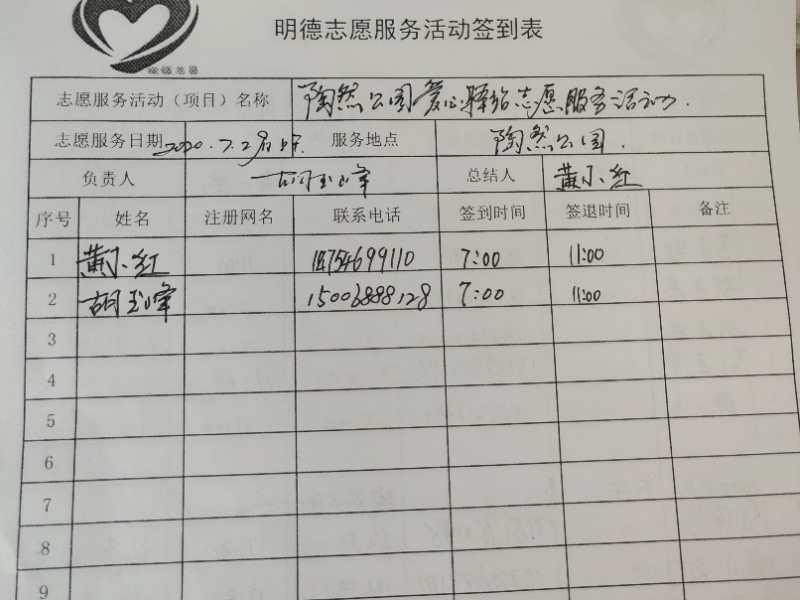 明德志愿服务活动签到表
志愿服务活动（项目）名称 陶然公园爱心驿站志愿服务活动.
志愿服务日期 2020.7.29 服务地点 陶然公园.
负责人 胡玉峰 总结人 黄小红
序号 姓名 注册网名 联系电话 签到时间 签退时间 备注
1 黄小红 7:00 11:00
2 胡玉峰 15006888128 7:00 11:00
3
4
5
6
7
8
9